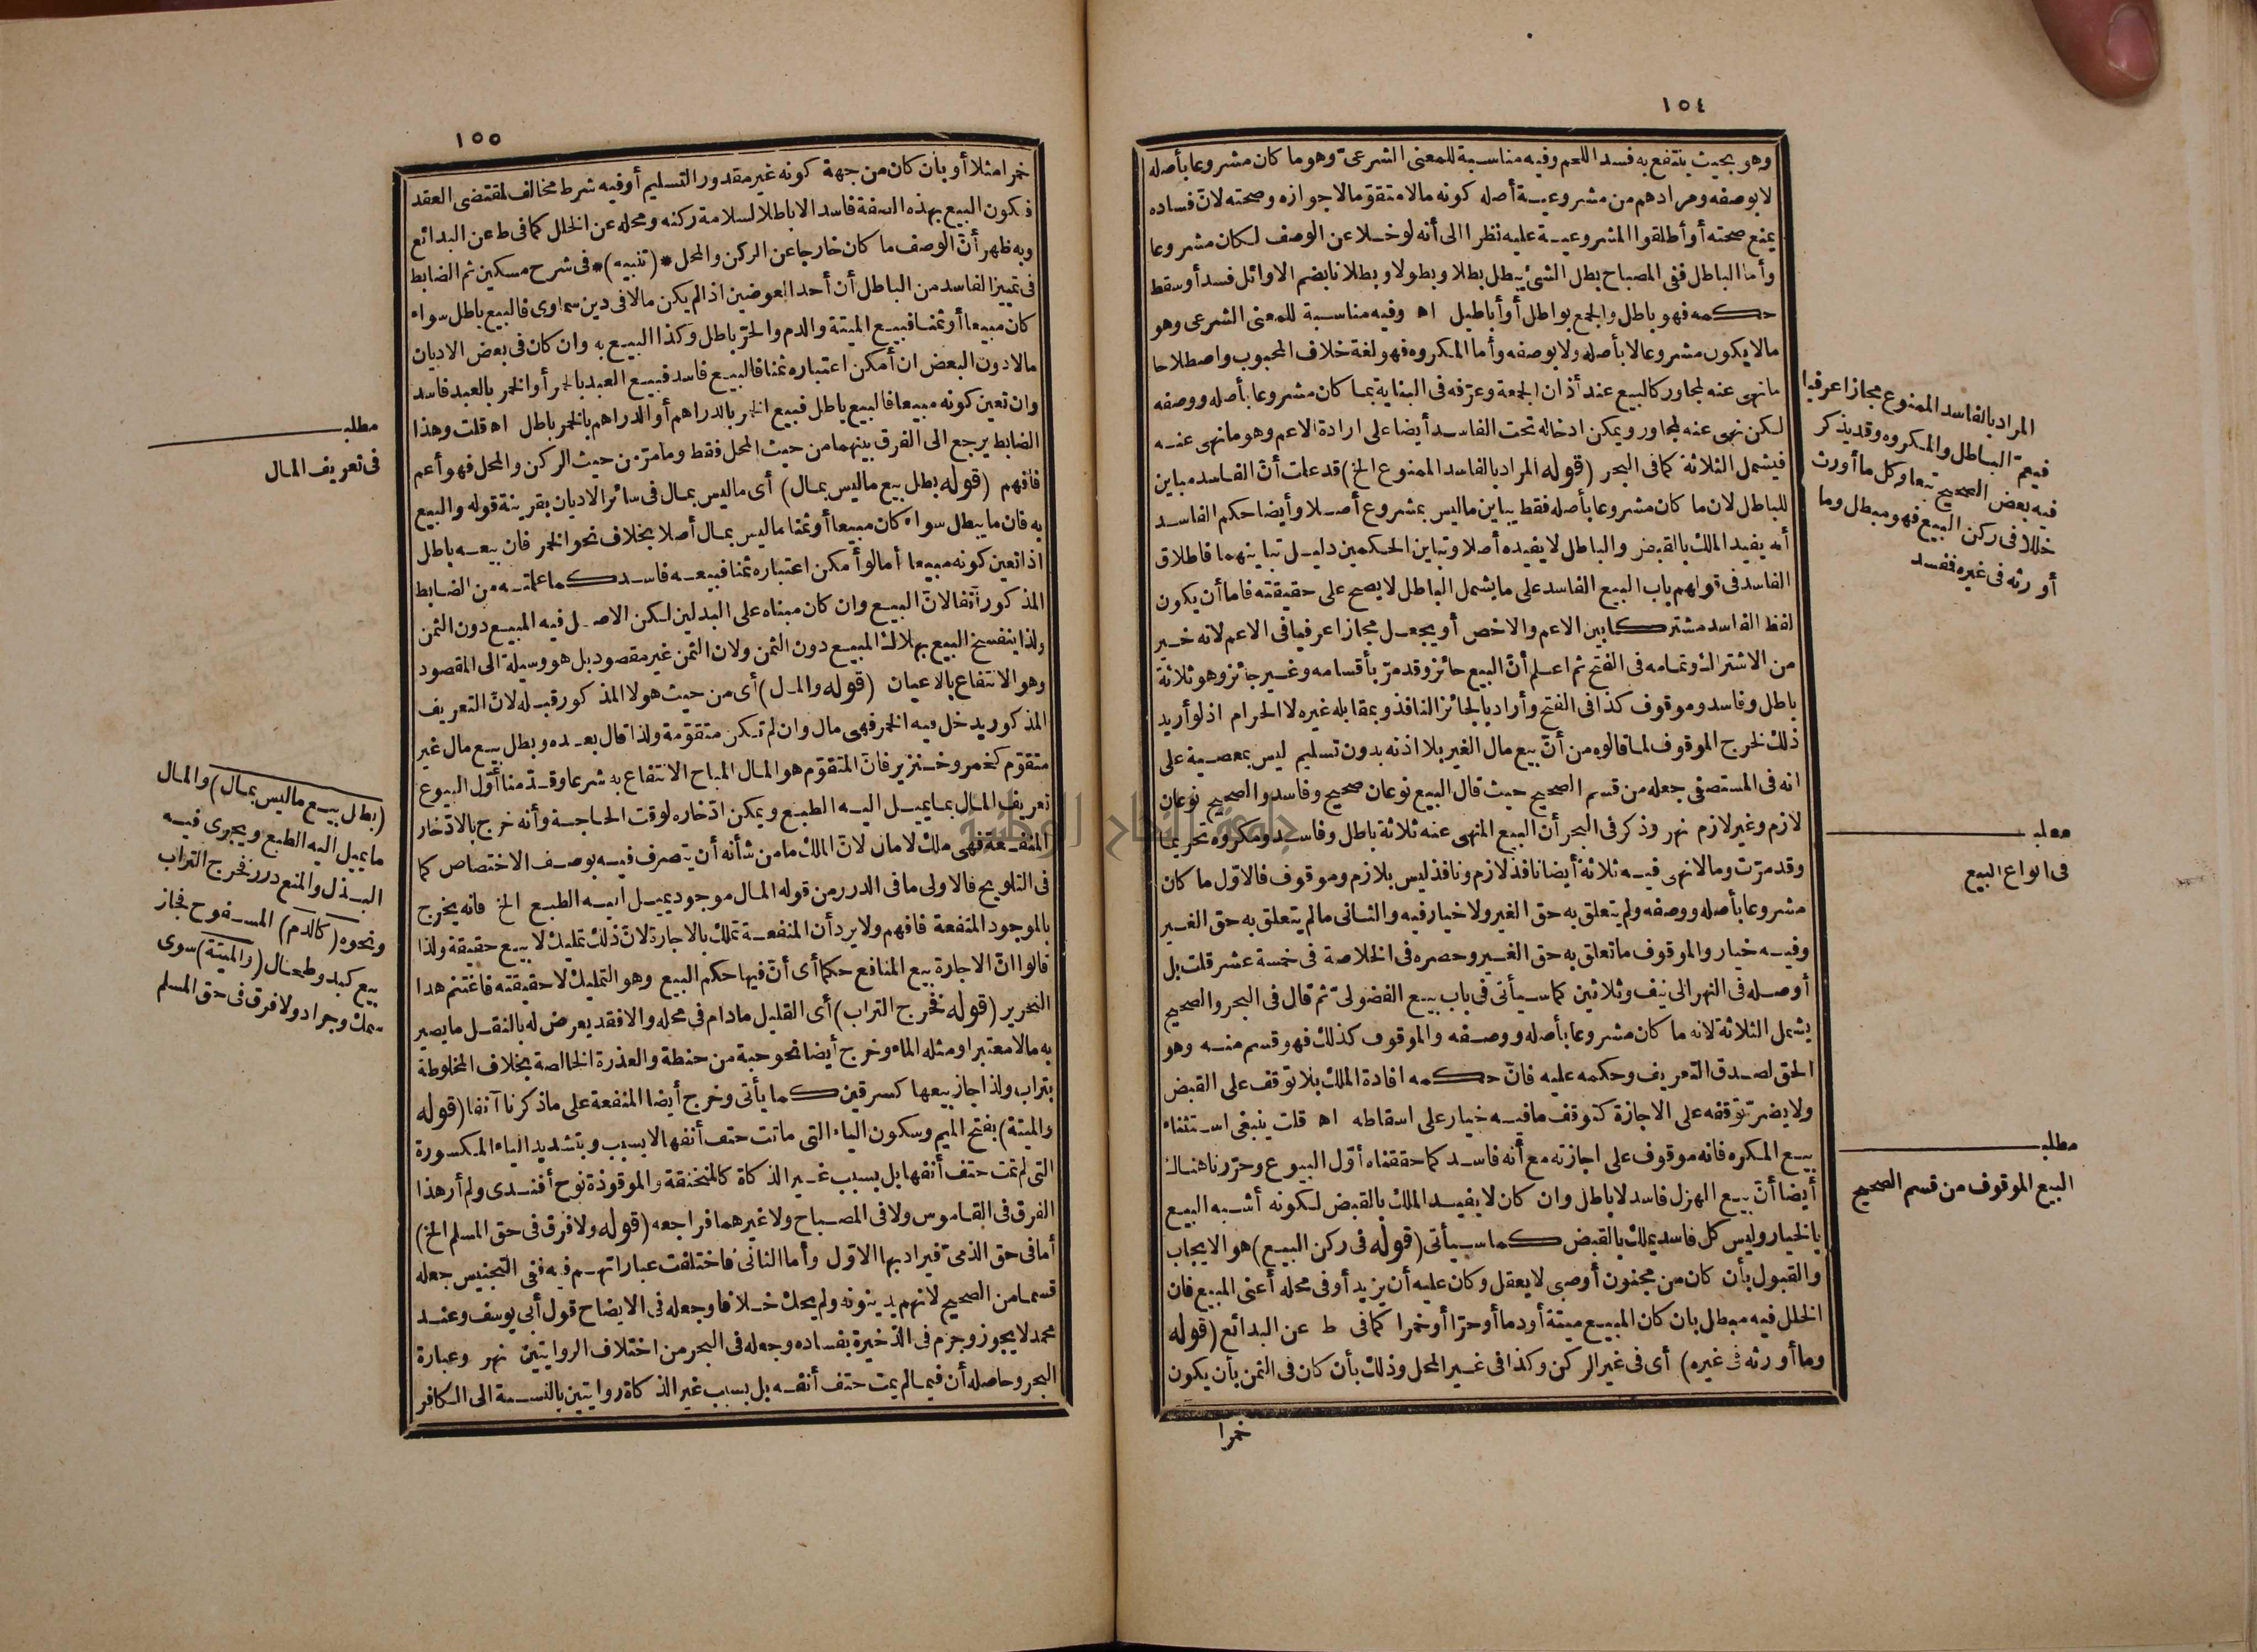 ١٥٤
وهو بحيث ينتفع به فسد اللحم وفيه مناسبة للمعنى الشرعىّ وهو ما كان مشروعا بأصله
لا بوصفه ومرادهم من مشروعية أصله كونه مالا متقوّما لا جوازه وصحته لانّ فساده
يمنع صحته أو أطلقوا المشروعية عليه نظرا الى أنه لو خلا عن الوصف لكان مشروعا
وأما الباطل ففى المصباح بطل الشئ يبطل بطلا وبطولا وبطلانا بضم الاوائل فسد أو سقط
حكمه فهو باطل والجمع بواطل أو أباطيل اه وفيه مناسبة للمعنى الشرعى وهو
ما لا يكون مشروعا لا بأصله ولا بوصفه وأما المكروه فهو لغة خلاف المحبوب واصطلاحا
ما نهى عنه لمجاور كالبيع عند أذان الجمعة وعرّفه فى البناية بما كان مشروعا بأصله ووصفه
لكن نهى عنه لمجاور ويمكن ادخاله تحت الفاسد أيضا على ارادة الاعم وهو ما نهى عنه
فيشمل الثلاثة كما فى البحر (قوله المراد بالفاسد الممنوع الخ) قد علمت أنّ الفاسد مباين
للباطل لان ما كان مشروعا بأصله فقط يباين ما ليس بمشروع أصلا وأيضا حكم الفاسد
أنه يفيد الملك بالقبض والباطل لا يفيده أصلا وتباين الحكمين دليل تباينهما فاطلاق
الفاسد فى قولهم باب البيع الفاسد على ما يشمل الباطل لا يصح على حقيقته فاما أن يكون
لفظ الفاسد مشتركا بين الاعم والاخص أو يجعل مجازا عرفيا فى الاعم لانه خير
من الاشتراك وتمامه فى الفتح ثم اعلم أنّ البيع جائز وقد مرّ بأقسامه وغير جائز وهو ثلاثة
باطل وفاسد وموقوف كذا فى الفتح وأراد بالجائز النافذ وبمقابله غيره لا الحرام اذ لو أريد
ذلك لخرج الموقوف لما قالوه من أنّ بيع مال الغير بلا اذنه بدون تسليم ليس بمعصية على
انه فى المستصفى جعله من قسم الصحيح حيث قال البيع نوعان صحيح وفاسد والصحيح نوعان
لازم وغير لازم نهر وذكر فى البحر أن البيع المنهى عنه ثلاثة باطل وفاسد ومكروه تحريما
وقد مرّت وما لا نهى فيه ثلاثة أيضا نافذ لازم ونافذ ليس بلازم وموقوف فالاوّل ما كان
مشروعا بأصله ووصفه ولم يتعلق به حق الغير ولا خيار فيه والثانى ما لم يتعلق به حق الغير
وفيه خيار والموقوف ما تعلق به حق الغير وحصره فى الخلاصة فى خمسة عشر قلت بل
أوصله فى النهر الى نيف وثلاثين كما سيأتى فى باب بيع الفضولىّ ثم قال فى البحر والصحيح
يشمل الثلاثة لانه ما كان مشروعا بأصله ووصفه والموقوف كذلك فهو قسم منه وهو
الحق لصدق التعريف وحكمه عليه فانّ حكمه افادة الملك بلا توقف على القبض
ولا يضرّ توقفه على الاجازة كتوقف ما فيه خيار على اسقاطه اه قلت ينبغى استثناء
بيع المكره فانه موقوف على اجازته مع أنه فاسد كما حققناه أوّل البيوع وحرّرنا هناك
أيضا أنّ بيع الهزل فاسد لا باطل وان كان لا يفيد الملك بالقبض لكونه أشبه البيع
بالخيار وليس كل فاسد يملك بالقبض كما سيأتى (قوله فى ركن البيع) هو الايجاب
والقبول بأن كان من مجنون أو صبى لا يعقل وكان عليه أن يزيد أو فى محله أعنى المبيع فان
الخلل فيه مبطل بان كان المبيع ميتة أو دما أو حرّا أو خمرا كما فى ط عن البدائع (قوله
وما أورثه فى غيره) أى فى غير الركن وكذا فى غير المحل وذلك بأن كان فى الثمن بأن يكون
خمرا
المراد بالفاسد الممنوع مجازا عرفيا
فيعمّ الباطل والمكروه وقد يذكر
فيه بعض الصحيح تبعا وكل ما أورث
خللا فى ركن البيع فهو مبطل وما
أورثه فى غيره ففسد
مطلب
فى انواع البيع
مطلب
البيع الموقوف من قسم الصحيح
١٥٥
خمرا مثلا أو بأن كان من جهة كونه غير مقدور التسليم أو فيه شرط مخالف لمقتضى العقد
فيكون البيع بهذه الصفة فاسدا لا باطلا لسلامة ركنه ومحله عن الخلل كما فى ط عن البدائع
وبه ظهر أنّ الوصف ما كان خارجا عن الركن والمحل *(تنبيه)* فى شرح مسكين ثم الضابط
فى تمييز الفاسد من الباطل أن أحد العوضين اذا لم يكن مالا فى دين سماوى فالبيع باطل سواء
كان مبيعا أو ثمنا فبيع الميتة والدم والحرّ باطل وكذا البيع به وان كان فى بعض الاديان
مالا دون البعض ان أمكن اعتباره ثمنا فالبيع فاسد فبيع العبد بالخمر أو الخمر بالعبد فاسد
وان تعين كونه مبيعا فالبيع باطل فبيع الخمر بالدراهم أو الدراهم بالخمر باطل اه قلت وهذا
الضابط يرجع الى الفرق بينهما من حيث المحل فقط وما مرّ من حيث الركن والمحل فهو أعم
فافهم (قوله بطل بيع ما ليس بمال) أى ما ليس بمال فى سائر الاديان بقرينة قوله والبيع
به فان ما يبطل سواء كان مبيعا أو ثمنا ما ليس بمال أصلا بخلاف نحو الخمر فان بيعه باطل
اذا تعين كونه مبيعا أما لو أمكن اعتباره ثمنا فبيعه فاسد كما علمته من الضابط
المذكور آنفا لانّ البيع وان كان مبناه على البدلين لكن الاصل فيه المبيع دون الثمن
ولذا ينفسخ البيع بهلاك المبيع دون الثمن ولان الثمن غير مقصود بل هو وسيلة الى المقصود
وهو الانتفاع بالاعيان (قوله والمال) أى من حيث هو لا المذكور قبله لانّ التعريف
المذكور يدخل فيه الخمر فهى مال وان لم تكن متقوّمة ولذا قال بعده وبطل بيع مال غير
متقوّم كخمر وخنزير فانّ المتقوّم هو المال المباح الانتفاع به شرعا وقدّمنا أوّل البيوع
تعريف المال بما يميل اليه الطبع ويمكن ادّخاره لوقت الحاجة وأنه خرج بالادّخار
المنفعة فهى ملك لا مال لانّ الملك ما من شأنه أن يتصرف فيه بوصف الاختصاص كما
فى التلويح فالاولى ما فى الدرر من قوله المال موجود يميل اليه الطبع الخ فانه يخرج
بالموجود المنفعة فافهم ولا يرد أن المنفعة تملك بالاجارة لانّ ذلك تمليك لا بيع حقيقة ولذا
قالوا انّ الاجارة بيع المنافع حكما أى أنّ فيها حكم البيع وهو التمليك لا حقيقته فاغتنم هذا
التحرير (قوله فخرج التراب) أى القليل ما دام فى محله والا فقد يعرض له بالنقل ما يصير
به مالا معتبرا ومثله الماء وخرج أيضا نحو حبة من حنطة والعذرة الخالصة بخلاف المخلوطة
بتراب ولذا جاز بيعها كسرقين كما يأتى وخرج أيضا المنفعة على ما ذكرنا آنفا (قوله
والميتة) بفتح الميم وسكون الياء التى ماتت حتف أنفها لا بسبب وبتشديد الياء المكسورة
التى لم تمت حتف أنفها بل بسبب غير الذكاة كالمنخنقة والموقوذة نوح أفندى ولم أر هذا
الفرق فى القاموس ولا فى المصباح ولا غيرهما فراجعه (قوله ولا فرق فى حق المسلم الخ)
أما فى حق الذمىّ فيراد بها الاوّل وأما الثانى فاختلفت عباراتهم فيه ففى التجنيس جعله
قسما من الصحيح لانهم يدينونه ولم يحك خلافا وجعله فى الايضاح قول أبى يوسف وعند
محمد لا يجوز وجزم فى الذخيرة بفساده وجعله فى البحر من اختلاف الروايتين نهر وعبارة
البحر وحاصله أن فيما لم يمت حتف أنفه بل بسبب غير الذكاة روايتين بالنسبة الى الكافر
مطلب
فى تعريف المال
(بطل بيع ما ليس بمال) والمال
ما يميل اليه الطبع ويجرى فيه
البذل والمنع درر فخرج التراب
ونحوه (كالدم) المسفوح فجاز
بيع كبد وطحال (والميتة) سوى
سمك وجراد ولا فرق فى حق المسلم
جامعة النجاح الوطنية